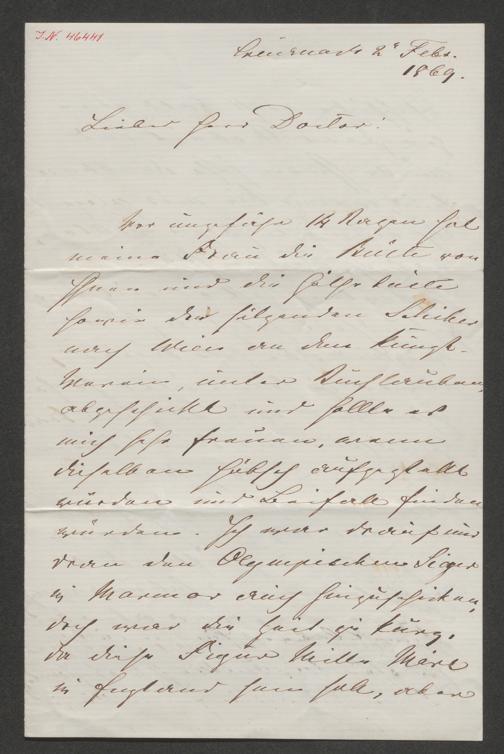 I.N. 46441
Kreuznach 2t Febr.
1869.
Lieber Herr Doctor!
Vor ungefähr 14 Tagen hat
meine Frau die Büste von
Ihnen und die
sowie den sitzenden Schiller
nach Wien an den Kunst-
Verein, unter Tuchlauben,
abgeschickt und sollte es
mich sehr freuen, wenn
dieselben hübsch aufgestellt
würden und Beifall finden
würden. Ich war drauf und
dran den Olympischen Sieger
in Marmor auch hinzuschicken,
doch war die Zeit zu kurz,
da diese Figur Mitte März
in England sein soll, aber